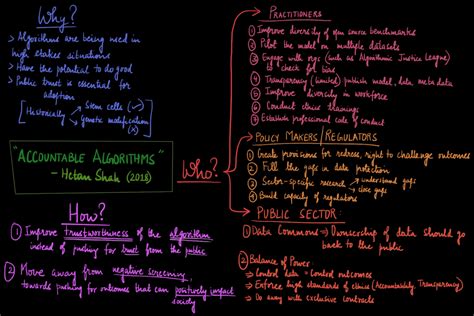 Why?
> Algorithms are being used in
high stakes situations
> Have the potential to do good
> Public trust is essential for
adoption
[Historically → Stem cells (✓)
→ genetic modification (x)]
"ACCOUNTABLE ALGORITHMS"
- Hetan Shah (2018)
How?
① Improve trustworthiness of the algorithm
instead of pushing for trust from the public
② Move away from negative screening,
towards pushing for outcomes that can positively impact
society
Who?
PRACTITIONERS
① Improve diversity of open source benchmarks
② Pilot the model on multiple datasets
③ Engage with orgs (such as Algorithmic Justice League)
to check for bias
④ Transparency (limited) publish model, data, meta data
⑤ Improve diversity in workforce
⑥ Conduct ethics trainings
⑦ Establish professional code of conduct
POLICY MAKERS/REGULATORS
① Create provisions for redress, right to challenge outcomes
② Fill the gaps in data protection
③ Sector-specific research → understand gaps
→ close gaps
④ Build capacity of regulators
PUBLIC SECTOR:
① Data Commons → Ownership of data should go
back to the public
② Balance of Power:
⇒ Control data = Control outcomes
⇒ Enforce high standards of ethics (Accountability, Transparency)
⇒ Do away with exclusive contracts